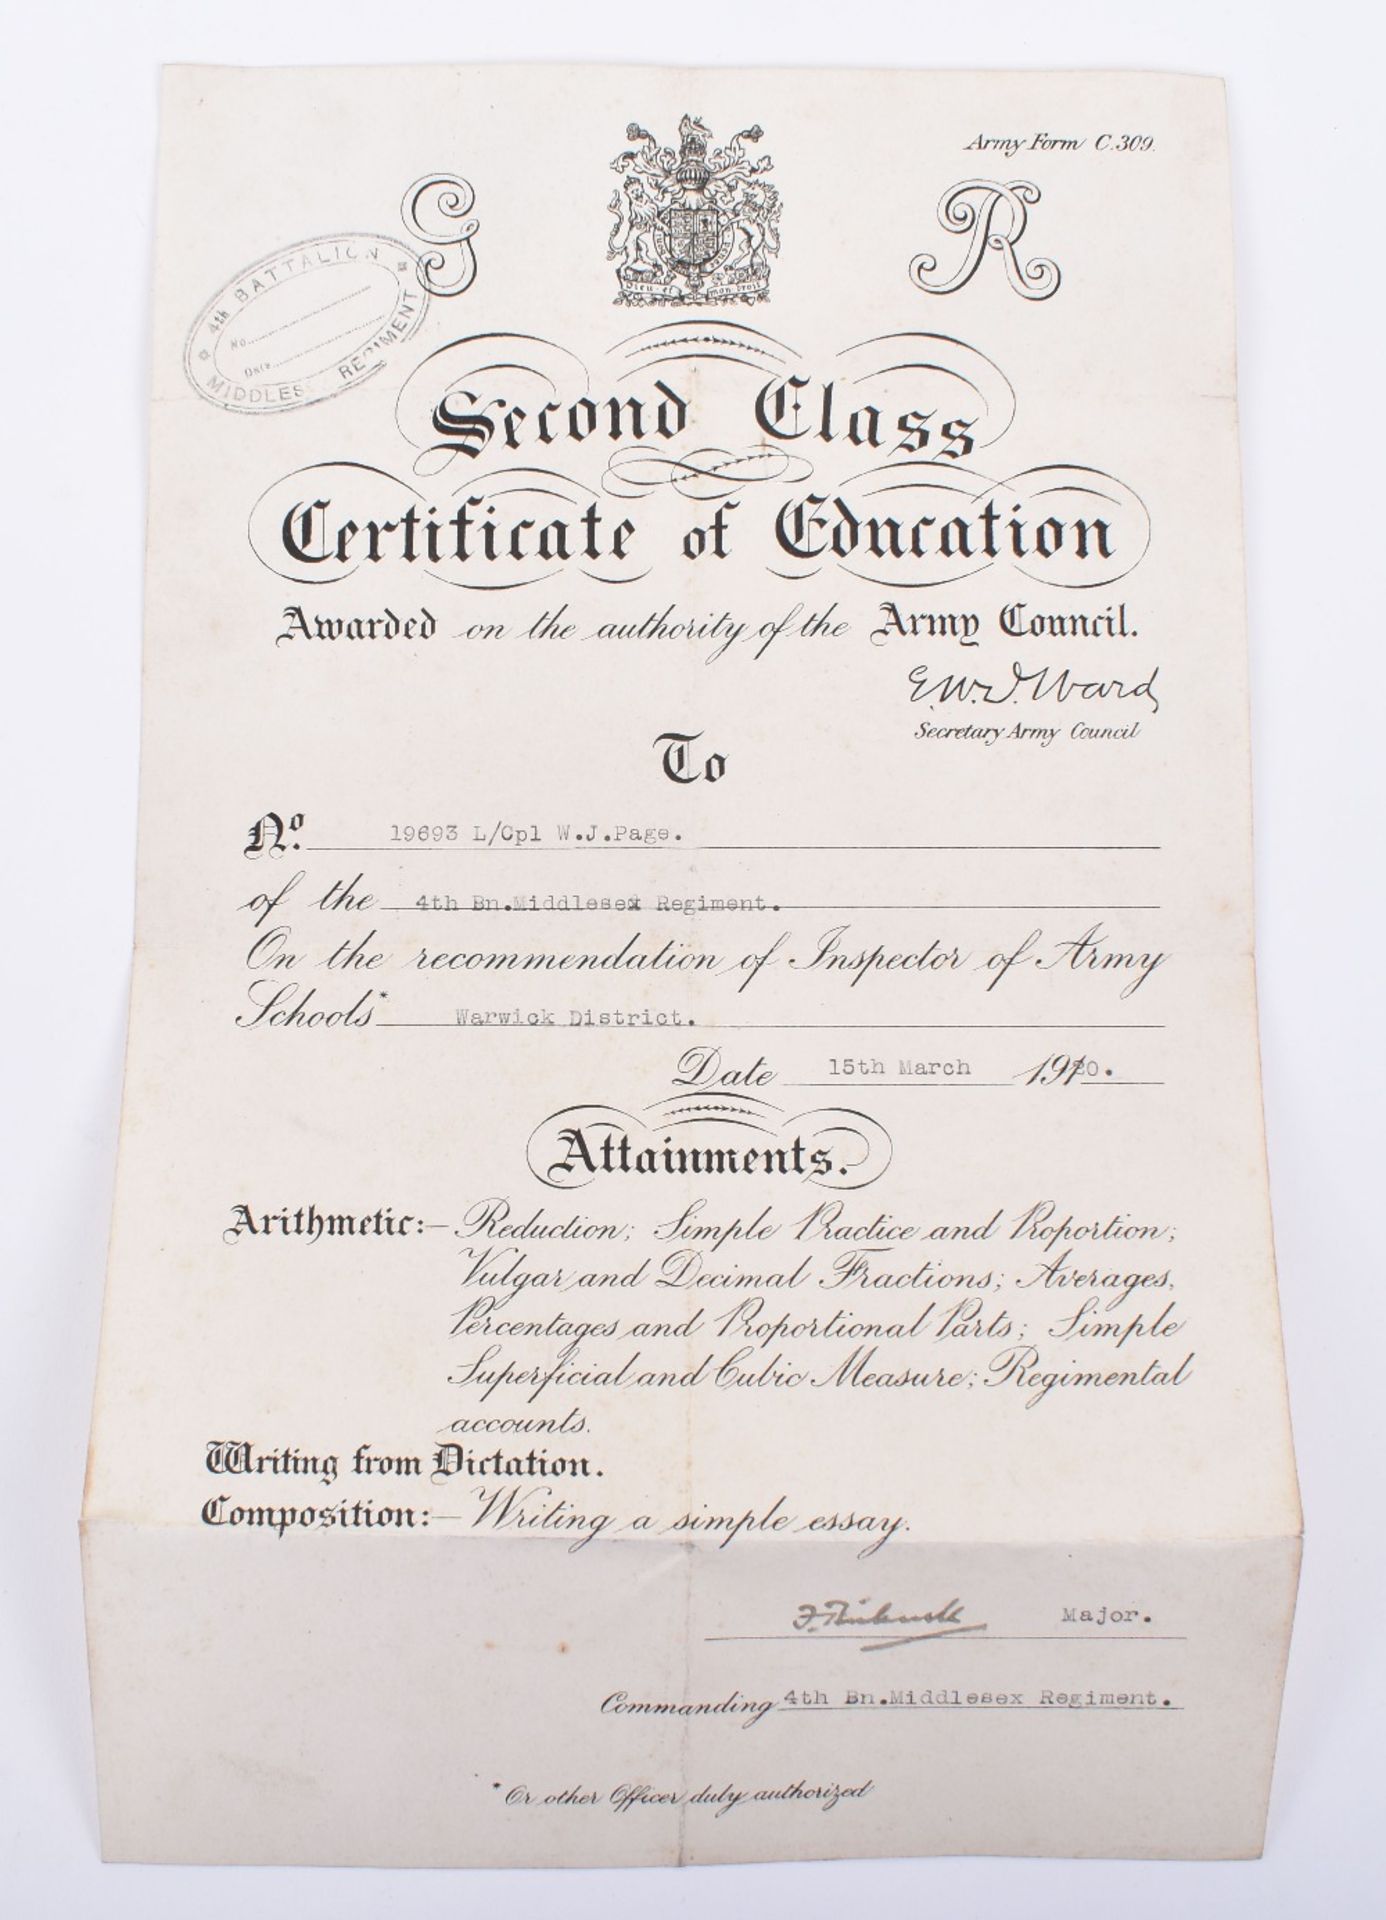 Army Form C.309.
G R
Dieu et mon droit
4th BATTALION
No.
Date
MIDDLES REGIMENT
Second Class
Certificate of Education
Awarded on the authority of the Army Council.
E.W.D. Ward
Secretary Army Council
To
No. 19693 L/Cpl W.J.Page.
of the 4th Bn.Middlesex Regiment.
On the recommendation of Inspector of Army
Schools* Warwick District.
Date 15th March 1920.
Attainments.
Arithmetic:— Reduction; Simple Practice and Proportion;
Vulgar and Decimal Fractions; Averages,
Percentages and Proportional Parts; Simple
Superficial and Cubic Measure; Regimental
accounts.
Writing from Dictation.
Composition:— Writing a simple essay.
Major.
Commanding 4th Bn.Middlesex Regiment.
* Or other Officer duly authorized